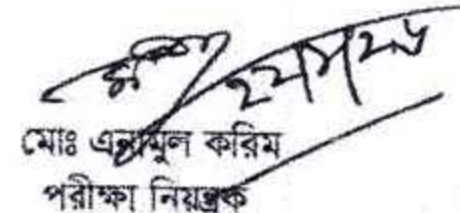 মোঃ এনামুল করিম
পরীক্ষা নিয়ন্ত্রক